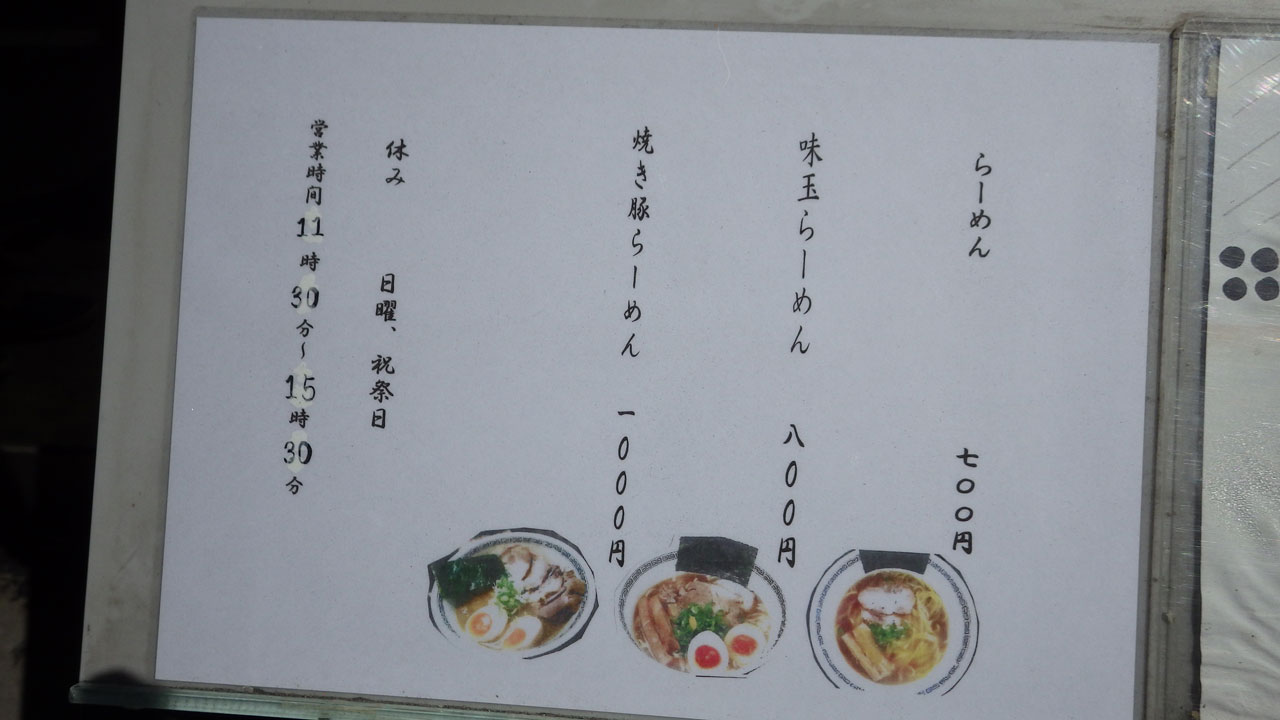 らーめん 七〇〇円
味玉らーめん 八〇〇円
焼き豚らーめん 一〇〇〇円
休み 日曜、祝祭日
営業時间 11時30分~15時30分